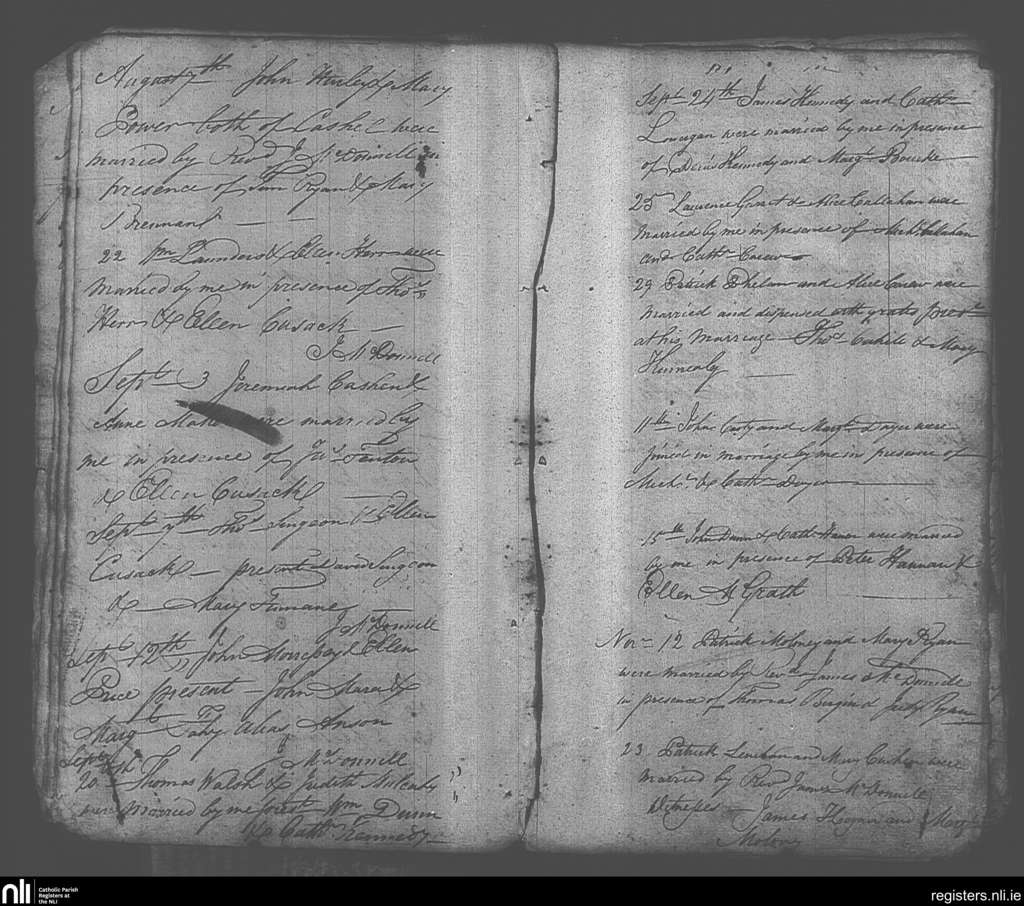 August 7th John Hurley & Mary
Power both of Cashel were
married by Revd J McDonnell in
presence of Tim Ryan & Mary
Brennan
22 Wm Launders & Ellen Hern were
Married by me in presence of Thos
Hern & Ellen Cusack
J McDonnell
Septr 3 Jeremiah Cashen &
Anne were married by
me in presence of Jas Fenton
& Ellen Cusack
Septr 7th Thos Singeon & Ellen
Cusack present David Singeon
& Mary
J McDonnell
Septr 12th John & Ellen
Price present John Mara &
Margt Fahy alias Anson
J McDonnell
Septr
20th Thomas Walsh & Judith Mulcahy
were married by me prest Wm Dunn
& Cathe Kennedy
Septr 24th James Kennedy and Cathe
Lonugan were married by me in presence
of Denis Kennedy and Margt Bourke
25 Laurence Grant & Alice Callahan were
married by me in presence of Michl Calahan
and Cathe Carew
29 Patrick Phelan and Alice Carew were
married and dispensed with gratis prest
at his Marriage Thos Cahill & Mary
Kennealy
11th John Carty and Margt Dwyer were
joined in marriage by me in presence of
Michl & Cathe Dwyer
15th John Dunn & Cathe were married
by me in presence of Peter Hannan &
Ellen McGrath
Novr 12 Patrick Moloney and Mary Ryan
were married by Revd James McDonnell
in presence of Thomas Bergin & Judy Ryan
23 Patrick Lenehan and Mary Cashen were
married by Revd James McDonnell
Witnesses James Hogan and Mary
Molony
nli
Catholic Parish
Registers at
the NLI
registers.nli.ie